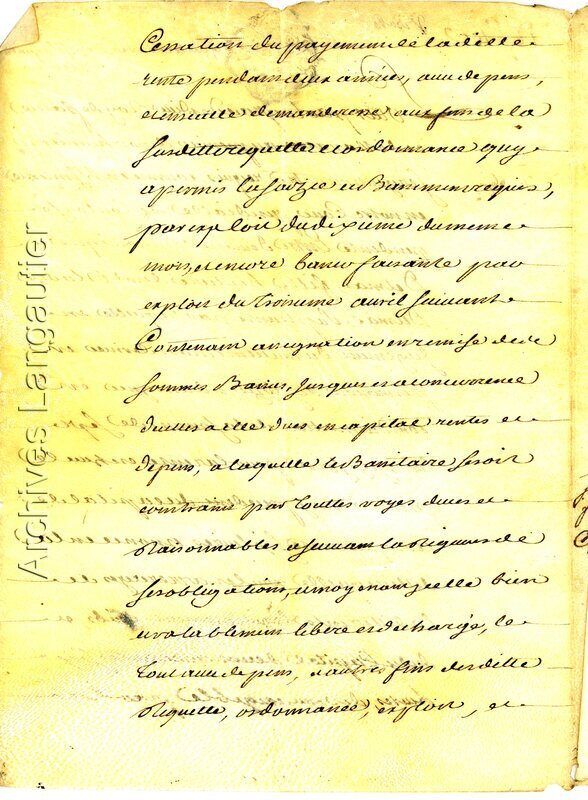 Cessation du payement de laditte
rente pendant deux années, aux depens,
et ensuitte demanderesse aux fins de la
susditte requette et ordonnance quy
a permis la saizie et Bannement requis,
par exploit du dixieme du meme
mois, et encore bannissante par
exploit du troisieme avril suivant
Contenant assignation en remise desd
sommes Banies, jusques et a concurrence
d'icelles a elle dues en capital rentes et
depens, a laquelle le Banitaire seroit
contraint par touttes voyes dues et
Raisonnables et suivant la Rigueur de
ses obligations, et moyenant icelle bien
et valablement libere et decharge, le
tout aux depens, et autres fins desditte
Requette, ordonnance, exploit, et
Archives Langautier